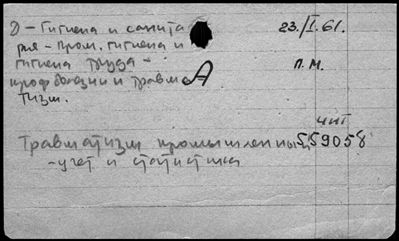 Д - Гигиена и санита
рия - Пром. гигиена и
гигиена труда -
профболезни и травма
тизм.
А
23./I.61.
П.М.
чит
Травматизм промышленный 559058
- учет и статистика